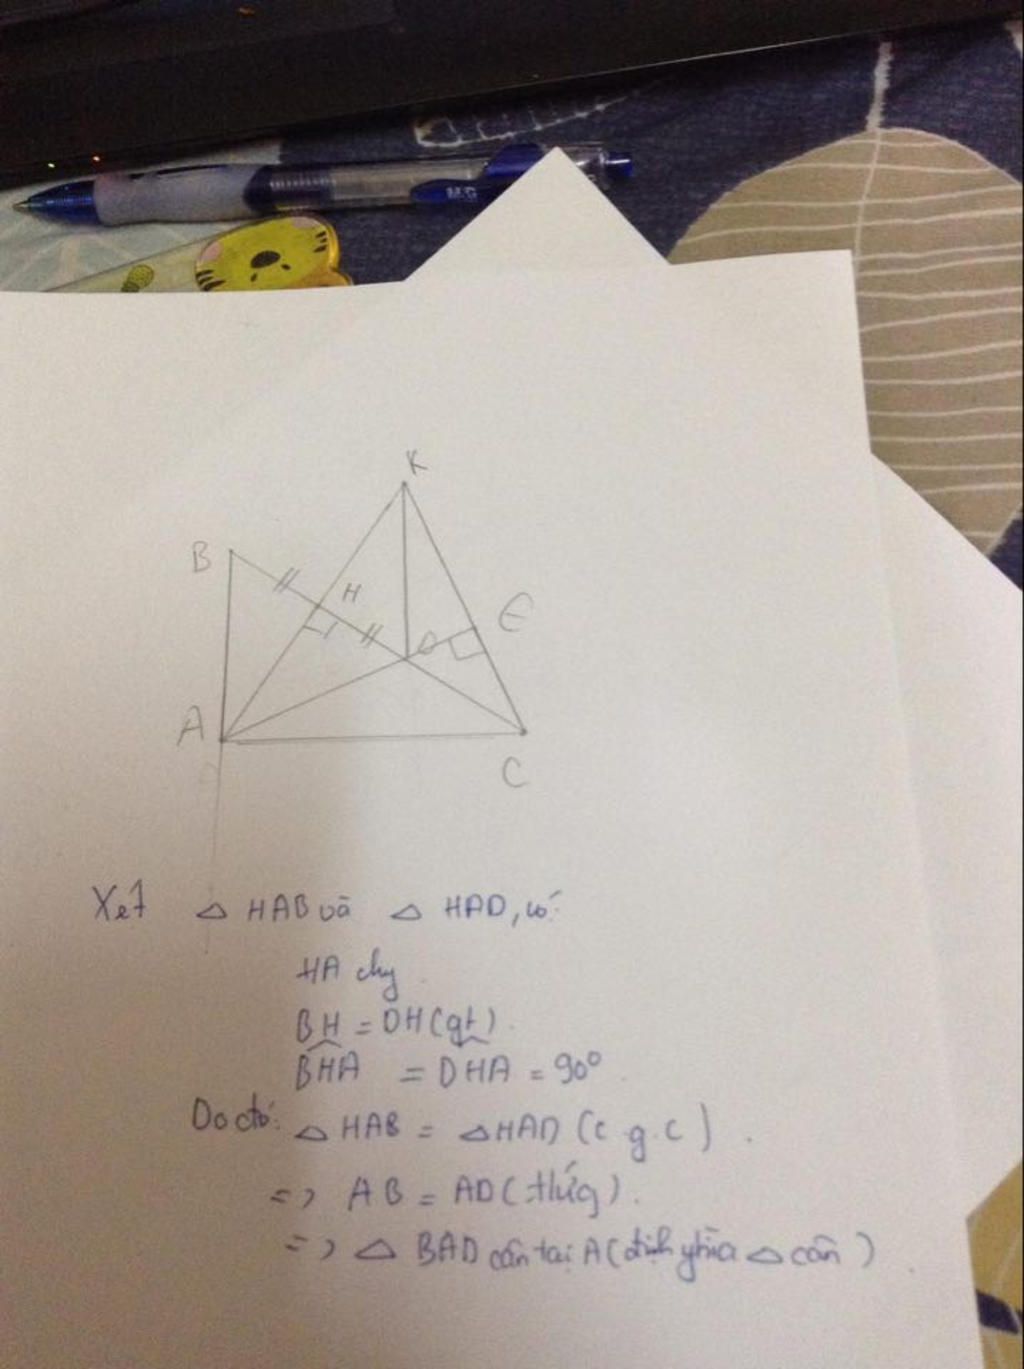 M&G
K
B
H
D
E
A
C
Xét △ HAB và △ HAD, có:
HA chg
BH = DH (gt).
BHA = DHA = 90°
Do đó: △ HAB = △HAD (c g.c).
=> AB = AD (tứg).
=> △ BAD cân tại A (định nghĩa △ cân).